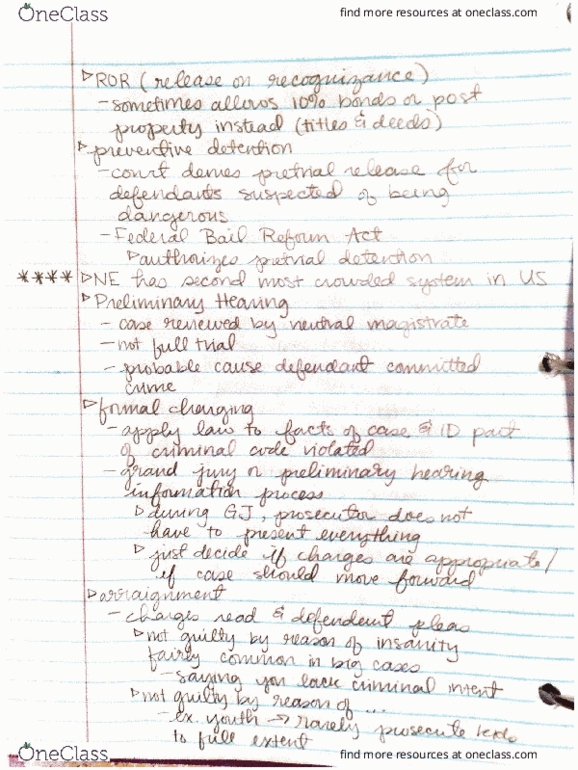 OneClass
find more resources at oneclass.com
▷ROR (release on recognizance)
-sometimes allows 10% bonds or post
property instead (titles & deeds)
▷preventive detention
-court denies pretrial release for
defendants suspected of being
dangerous
-Federal Bail Reform Act
▷authorizes pretrial detention
**** ▷NE has second most crowded system in US
▷Preliminary Hearing
- case reviewed by neutral magistrate
- not full trial
- probable cause defendant committed
crime
▷formal charging
- apply law to facts of case & ID part
of criminal code violated
- grand jury or preliminary hearing
information process
▷during GJ, prosecutor does not
have to present everything
▷just decide if charges are appropriate/
if case should move forward
▷arraignment
- charges read & defendent pleas
▷not guilty by reason of insanity
fairly common in big cases
- saying you lack criminal intent
▷not guilty by reason of ...
- ex. youth → rarely prosecute
to full extent
OneClass
find more resources at oneclass.com